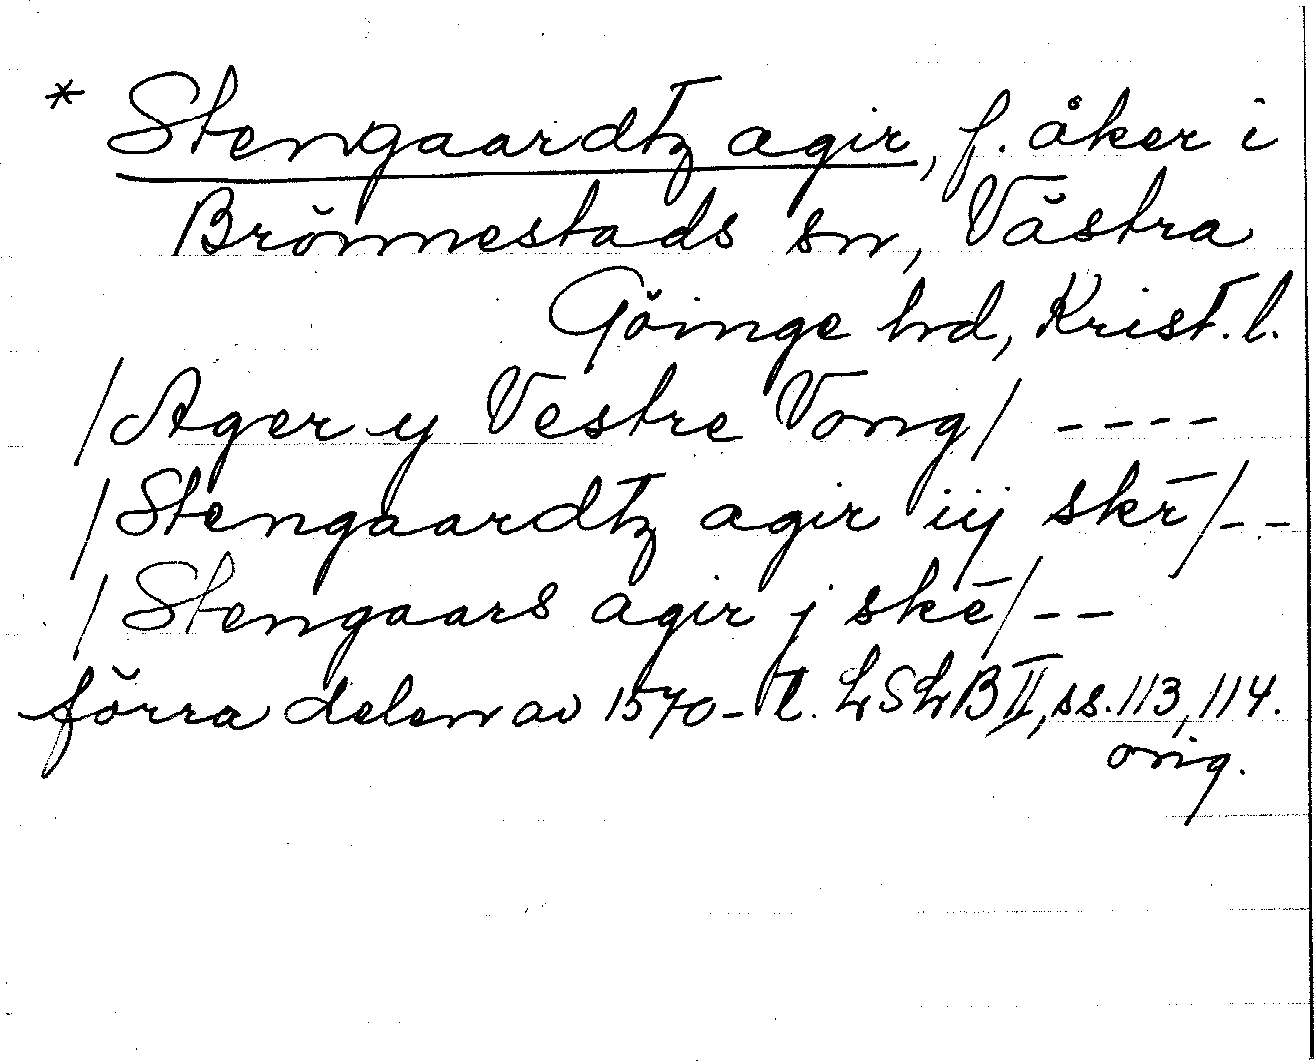 * Stengaardtz agir, f. åker i
Brönnestads sn, Västra
Göinge hd, Krist. l.
/Ager y Vestre Vong/ ----
/Stengaardtz agir iij skr̄/--
/Stengaars agir j skē/--
förra delen av 1570-t. LSLB II, ss. 113, 114.
orig.